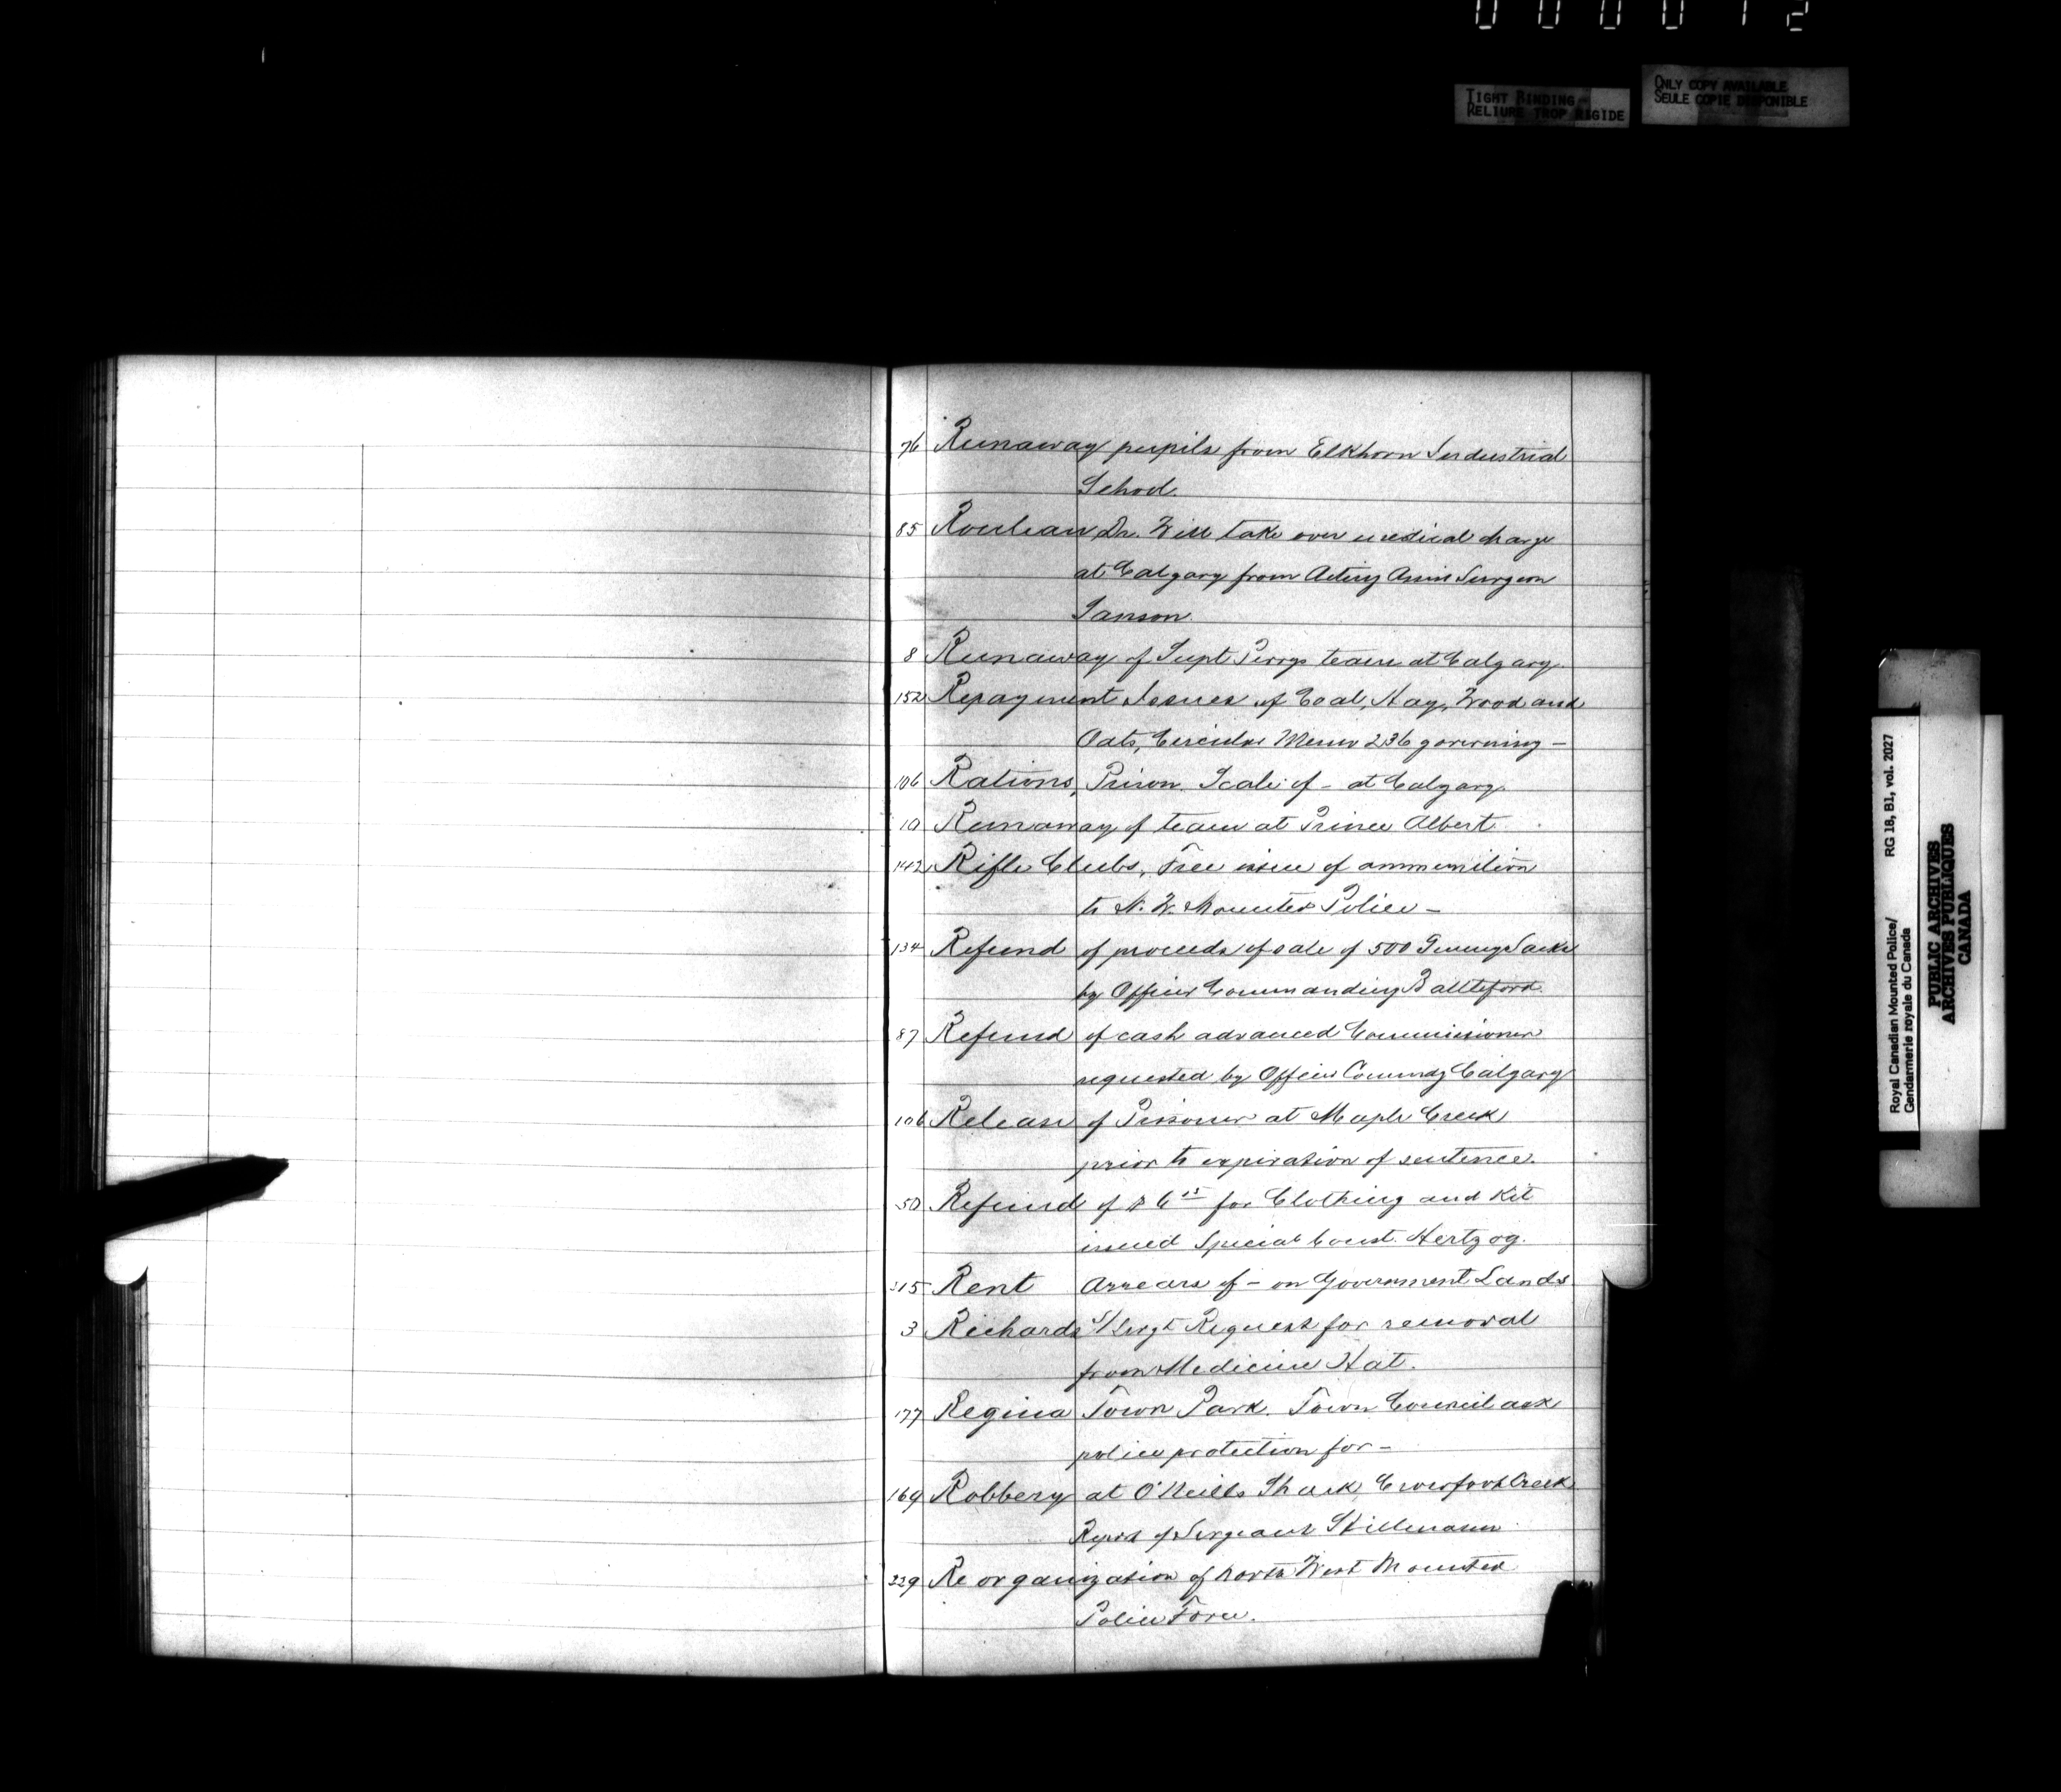 000012
TIGHT BINDING
RELIURE TROP RIGIDE
ONLY COPY AVAILABLE
SEULE COPIE DISPONIBLE
76 Runaway pupils from Elkhorn Industrial
School.
85 Rouleau Dr. Will take over medical charge
at Calgary from Acting Assist Surgeon
Sanson.
8 Runaway of Supt Perrys team at Calgary.
152 Repayment Issues of Coal, Hay, Wood and
Oats, Circular Memo 236 governing -
106 Rations, Prison. Scale of - at Calgary.
10 Runaway of team at Prince Albert.
142 Rifle Clubs, Free issue of ammunition
to N. W. Mounted Police -
134 Refund of proceeds of sale of 500 Gunny Sacks
by Officer Commanding Battleford.
87 Refund of cash advanced Commissioner
requested by Officer Commdg Calgary
106 Release of Prisoner at Maple Creek
prior to expiration of sentence.
50 Refund of $6 15 for Clothing and Kit
issued Special Const. Hertzog.
315 Rent Arrears of - on Government Lands
3 Richards S/Sergt Request for removal
from Medicine Hat.
177 Regina Town Park. Town Council ask
police protection for -
169 Robbery at O'Neills Shack, Crowfoot Creek
Report of Sergeant
229 Reorganization of North West Mounted
Police Force.
Royal Canadian Mounted Police/ RG 18, B1, vol. 2027
Gendarmerie royale du Canada
PUBLIC ARCHIVES
ARCHIVES PUBLIQUES
CANADA